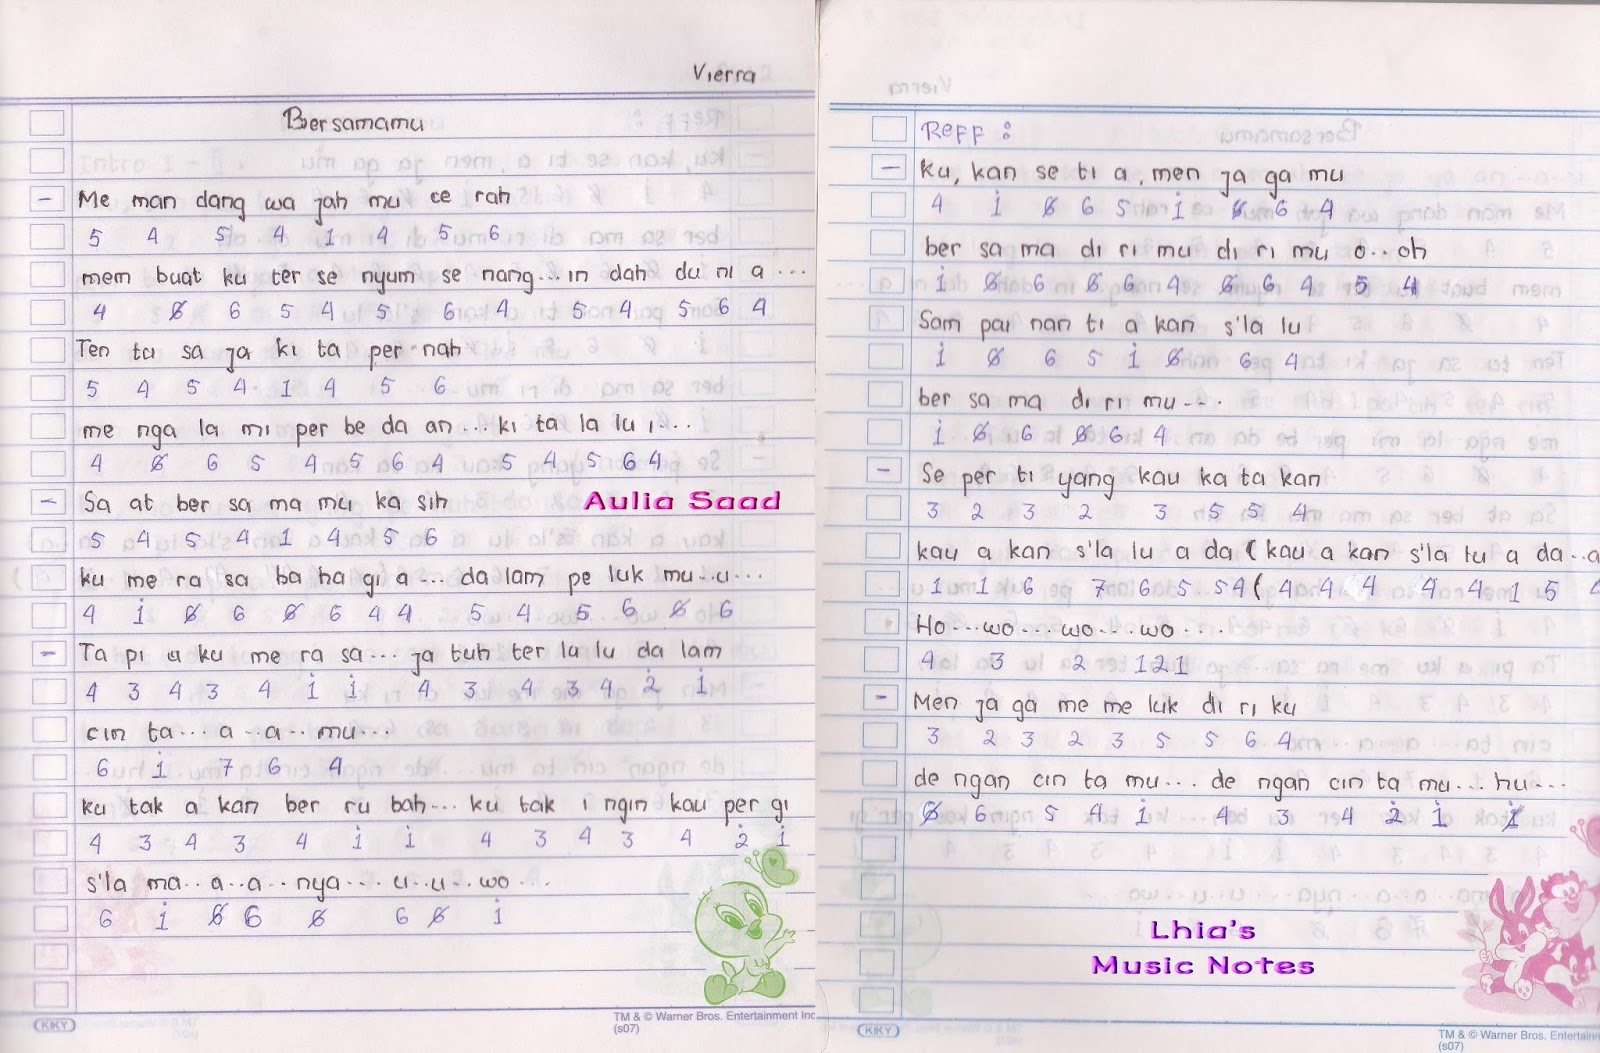 Vierra
Bersamamu
- Me man dang wa jah mu ce rah
5 4 5 4 1 4 5 6
mem buat ku ter se nyum se nang...in dah du ni a...
4 6̸ 6 5 4 5 6 4 5 4 5 6 4
Ten tu sa ja ki ta per nah
5 4 5 4 1 4 5 6
me nga la mi per be da an...ki ta la lu i...
4 6̸ 6 5 4 5 6 4 5 4 5 6 4
- Sa at ber sa ma mu ka sih
Aulia Saad
5 4 5 4 1 4 5 6
ku me ra sa ba ha gi a... da lam pe luk mu..u...
4 i 6̸ 6 6̸ 6 4 4 5 4 5 6 6̸ 6
- Ta pi a ku me ra sa... ja tuh ter la lu da lam
4 3 4 3 4 i i 4 3 4 3 4 2̇ i
cin ta... a..a.. mu...
6 i 7 6 4
ku tak a kan ber ru bah... ku tak i ngin kau per gi
4 3 4 3 4 i i 4 3 4 3 4 2̇ i
s'la ma..a..a..nya...u..u..wo...
6 i 6̸ 6 6̸ 6 6̸ i
KIKY
TM & © Warner Bros. Entertainment Inc
(s07)
Reff :
- ku, kan se ti a, men ja ga mu
4 i 6̸ 6 5 i 6̸ 6 4
ber sa ma di ri mu di ri mu o..oh
i 6̸ 6 6̸ 6 4 6̸ 6 4 5 4
Sam pai nan ti a kan s'la lu
i 6̸ 6 5 i 6̸ 6 4
ber sa ma di ri mu...
i 6̸ 6 6̸ 6 4
- Se per ti yang kau ka ta kan
3 2 3 2 3 5 5 4
kau a kan s'la lu a da (kau a kan s'la lu a da..a
1 1 6 7 6 5 5 4 ( 4 4 4 4 4 1 5
Ho...wo...wo...wo....
4 3 2 1 2 1
- Men ja ga me me luk di ri ku
3 2 3 2 3 5 5 6 4
de ngan cin ta mu... de ngan cin ta mu... hu...
6̸ 6 5 4 i 4 3 4 2̇ i i̸
Lhia's
Music Notes
KIKY
TM & © Warner Bros. Entertain
(s07)